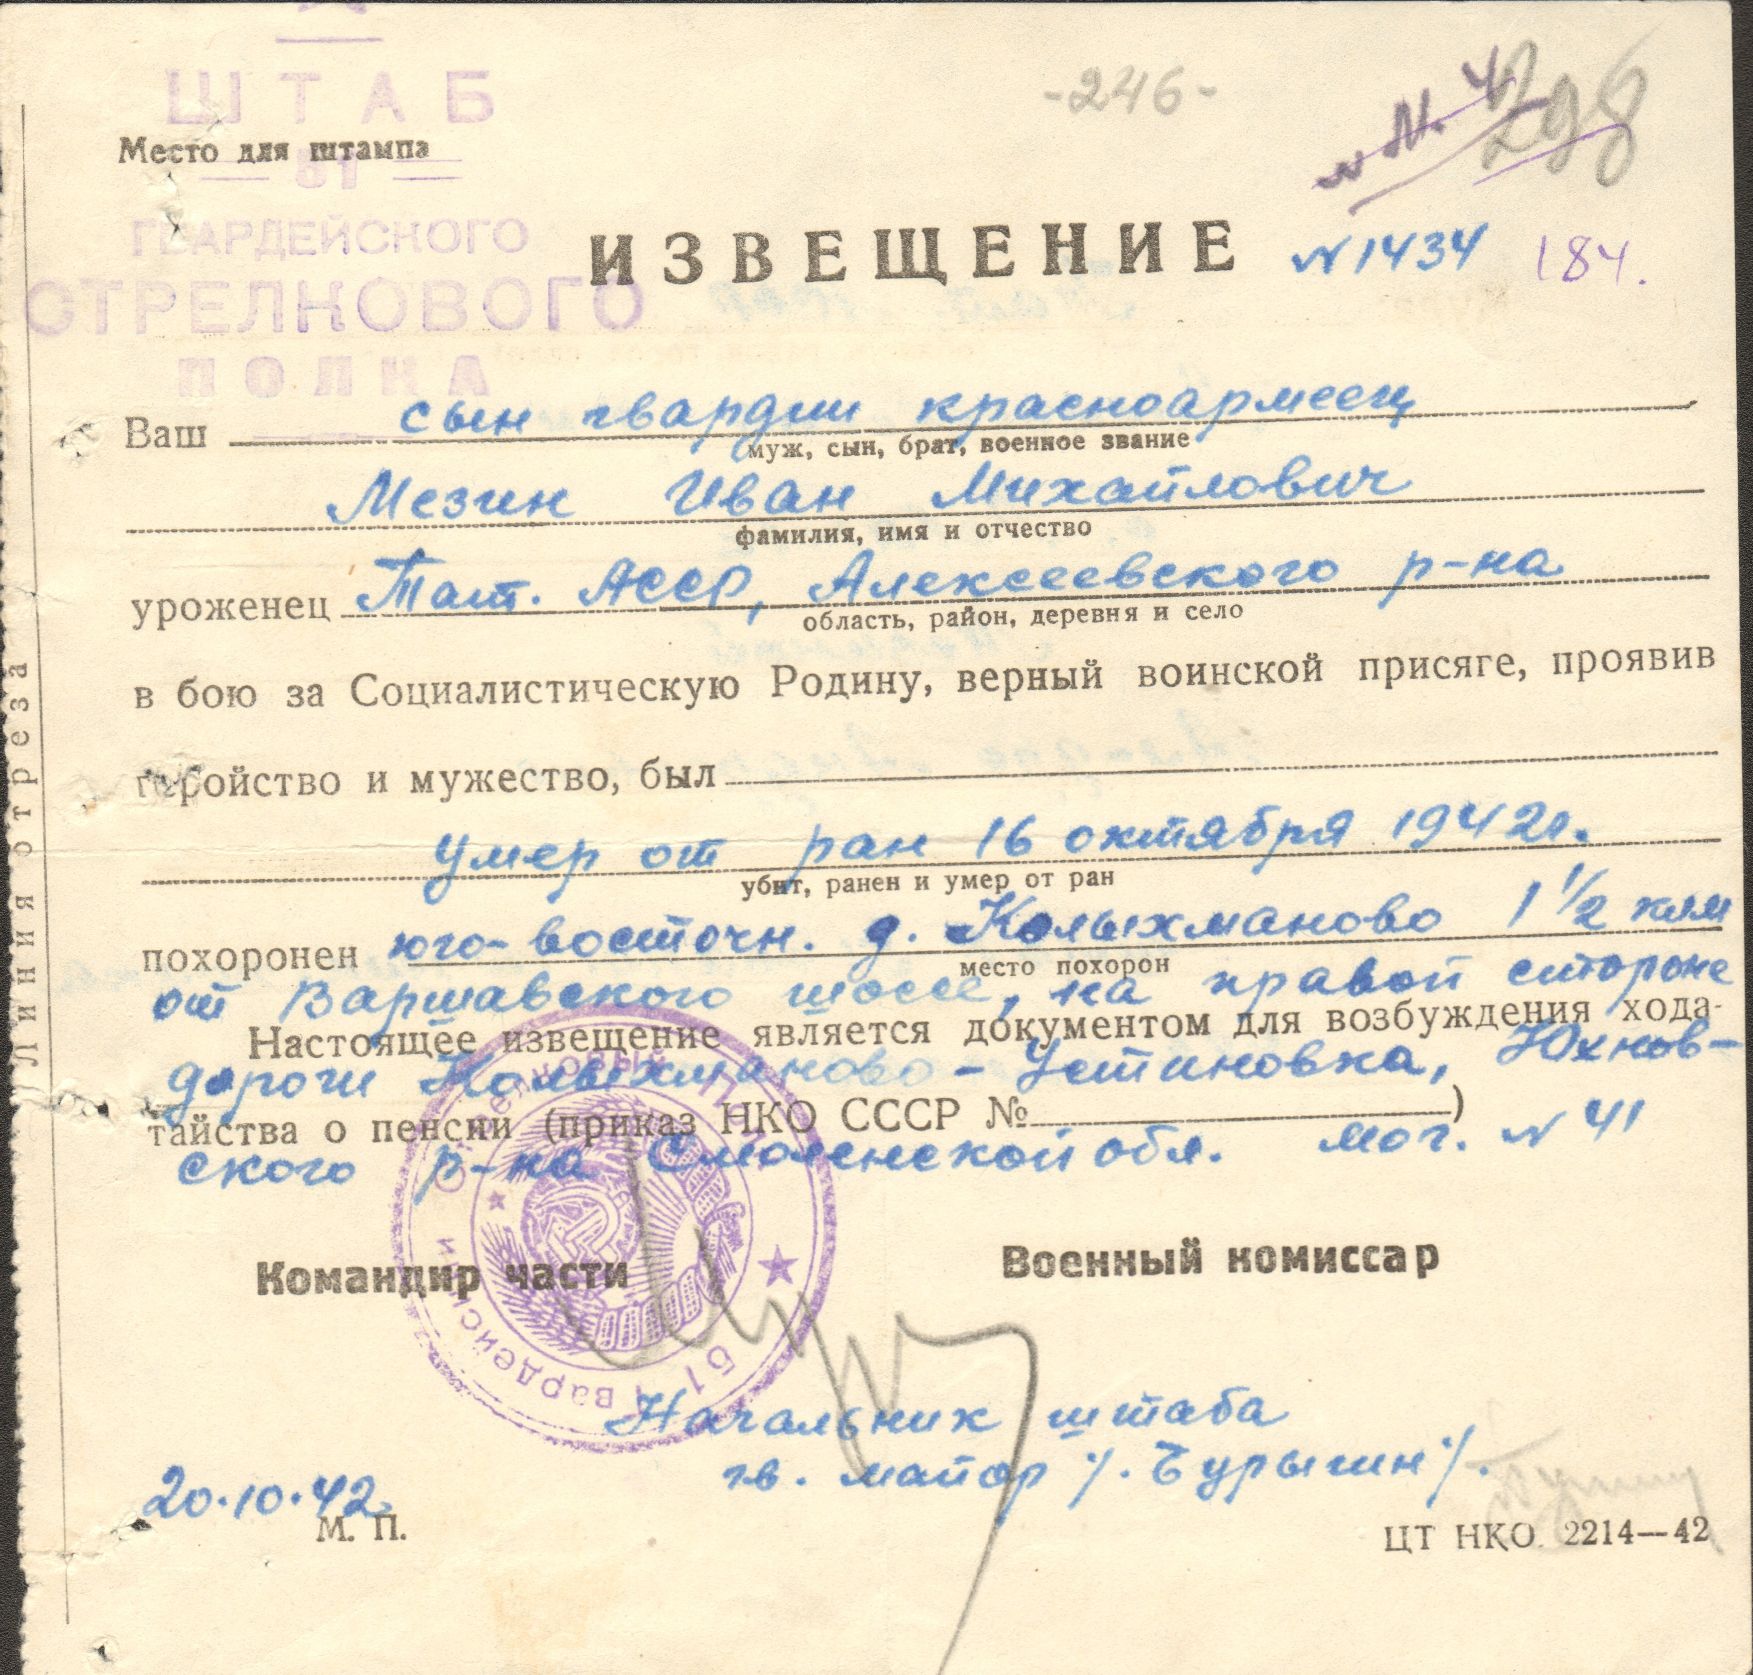 ШТАБ
Место для штампа
ГВАРДЕЙСКОГО
СТРЕЛКОВОГО
ПОЛКА
-246-
298
ИЗВЕЩЕНИЕ №1434 184.
Ваш сын гвардии красноармеец
муж, сын, брат, военное звание
Мезин Иван Михайлович
фамилия, имя и отчество
уроженец Тат. АССР, Алексеевского р-на
область, район, деревня и село
в бою за Социалистическую Родину, верный воинской присяге, проявив
геройство и мужество, был
умер от ран 16 октября 1942г.
убит, ранен и умер от ран
похоронен юго-восточн. д. Колыхманово 1 1/2 клм
место похорон
от Варшавского шоссе, на правой стороне
Настоящее извещение является документом для возбуждения хода-
дороги Колыхманово - Устиновка, Юхнов-
тайства о пенсии (приказ НКО СССР № )
ского р-на Смоленской обл. мог. № 41
Командир части
Военный комиссар
Начальник штаба
гв. майор /. Бурыгин /.
20.10.42.
М. П.
ЦТ НКО 2214—42
Линия отреза